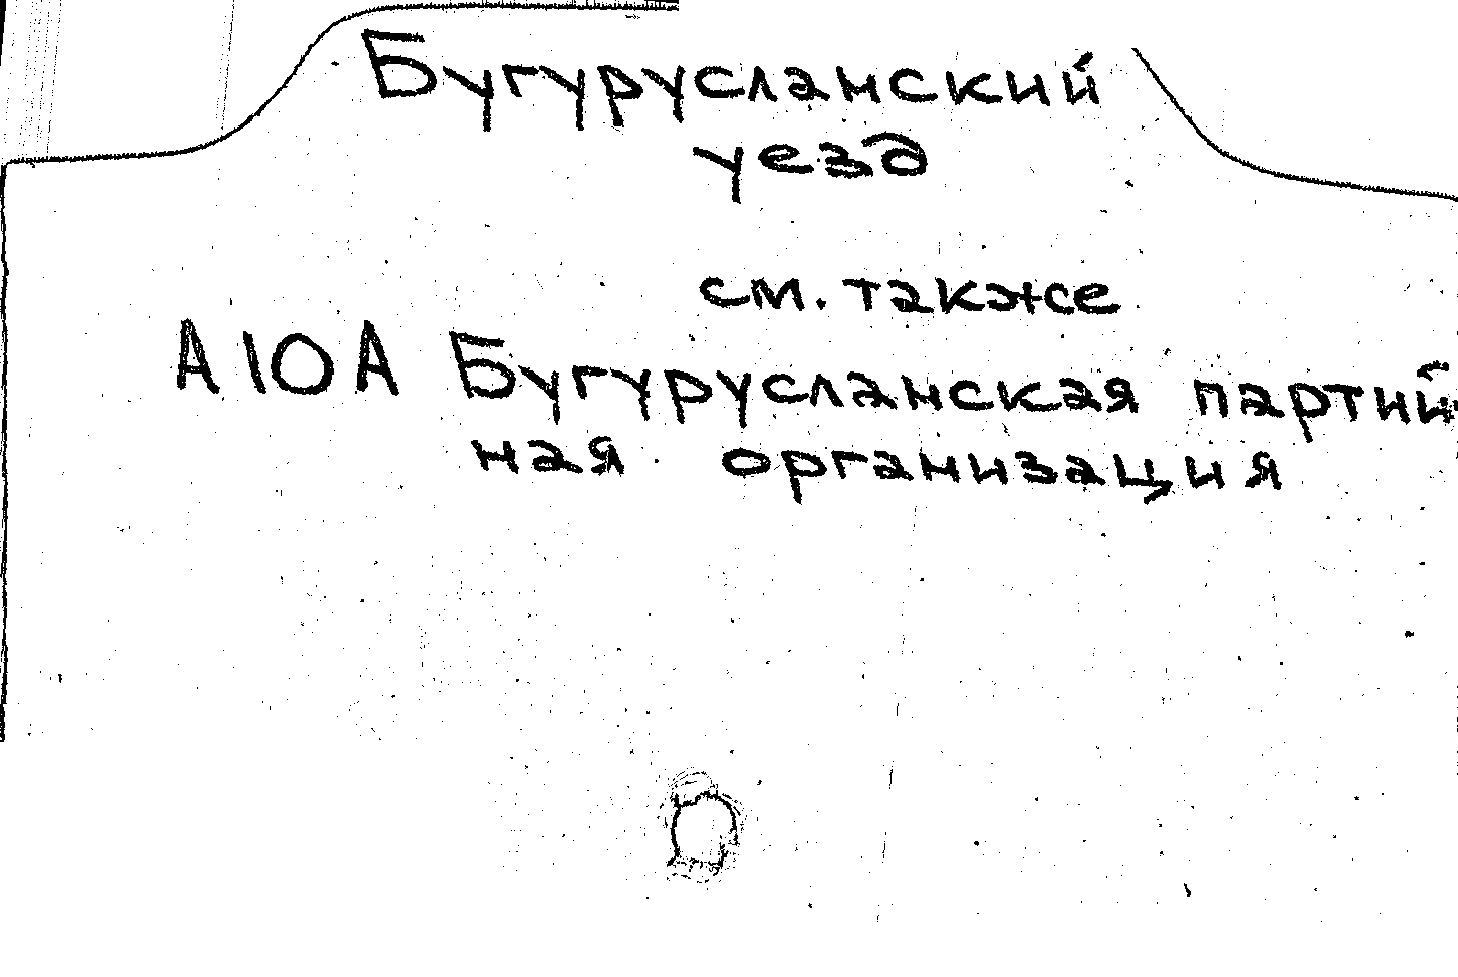 Бугурусланский
уезд
см. также
А10А Бугурусланская партий
ная организация